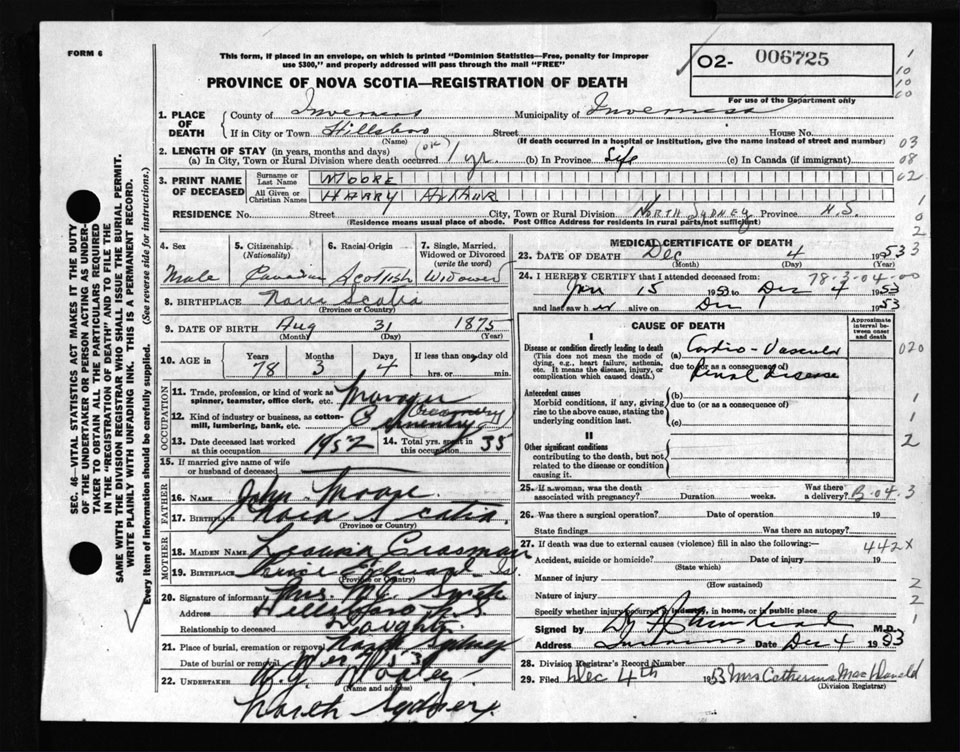 FORM 6
This form, if placed in an envelope, on which is printed "Dominion Statistics—Free, penalty for improper
use $300," and properly addressed will pass through the mail "FREE"
PROVINCE OF NOVA SCOTIA—REGISTRATION OF DEATH
02- 006725
For use of the Department only
1. PLACE OF DEATH
County of Inverness Municipality of Inverness
If in City or Town Hillsboro Street House No.
(Name) (If death occurred in a hospital or institution, give the name instead of street and number)
2. LENGTH OF STAY (in years, months and days)
(a) In City, Town or Rural Division where death occurred 1 yr. (b) In Province Life (c) In Canada (if immigrant)
3. PRINT NAME OF DECEASED
Surname or Last Name MOORE
All Given or Christian Names HARRY
RESIDENCE No. Street City, Town or Rural Division NORTH SYDNEY Province N.S.
(Residence means usual place of abode. Post Office Address for residents in rural parts/not sufficient)
4. Sex Male
5. Citizenship. (Nationality) Canadian
6. Racial-Origin Scottish
7. Single, Married, Widowed or Divorced (write the word) Widowed
8. BIRTHPLACE Nova Scotia
(Province or Country)
9. DATE OF BIRTH Aug 31 1875
(Month) (Day) (Year)
10. AGE in Years 78 Months 3 Days 4 If less than one day old
hrs. or min.
OCCUPATION
11. Trade, profession, or kind of work as spinner, teamster, office clerk, etc. Manager
12. Kind of industry or business, as cotton-mill, lumbering, bank, etc. (Creamery)
13. Date deceased last worked at this occupation 1952 14. Total yrs. spent in this occupation 35
15. If married give name of wife or husband of deceased
FATHER
16. NAME John Moore
17. BIRTHPLACE Nova Scotia
(Province or Country)
MOTHER
18. MAIDEN NAME
19. BIRTHPLACE Prince Edward Is
(Province or Country)
20. Signature of informant Mrs.
Address Hillsboro N.S.
Relationship to deceased Daughter
21. Place of burial, cremation or removal North Sydney
Date of burial or removal
22. UNDERTAKER W.J. Dooley
(Name and address)
North Sydney
MEDICAL CERTIFICATE OF DEATH
23. DATE OF DEATH Dec 4 1953
(Month) (Day)
24. I HEREBY CERTIFY that I attended deceased from: 78-3-04-00
Jan 15 1953 to Dec 4 1953
and last saw h alive on Dec 1953
CAUSE OF DEATH
Approximate interval between onset and death
I
Disease or condition directly leading to death (a) Cardio-Vascular
(This does not mean the mode of dying, e.g., heart failure, asthenia, etc. It means the disease, injury, or complication which caused death.)
due to (or as a consequence of) Renal Disease
Antecedent causes (b)
Morbid conditions, if any, giving rise to the above cause, stating the underlying condition last.
due to (or as a consequence of)
(c)
II
Other significant conditions
contributing to the death, but not related to the disease or condition causing it.
25. If a woman, was the death associated with pregnancy? Duration weeks. Was there a delivery? B-04-3
26. Was there a surgical operation? Date of operation 19
State findings Was there an autopsy?
27. If death was due to external causes (violence) fill in also the following: 442X
Accident, suicide or homicide? Date of injury 19
(State which)
Manner of injury
(How sustained)
Nature of injury
Specify whether injury occurred in industry, in home, or in public place
Signed by M.D.
Address Inverness Date Dec 4 1953
28. Division Registrar's Record Number
29. Filed Dec 4th 1953 Mrs Catherine MacDonald
(Division Registrar)
SEC. 46—VITAL STATISTICS ACT MAKES IT THE DUTY
OF THE UNDERTAKER OR PERSON ACTING AS UNDER-
TAKER TO OBTAIN ALL THE PARTICULARS REQUIRED
IN THE "REGISTRATION OF DEATH" AND TO FILE THE
SAME WITH THE DIVISION REGISTRAR WHO SHALL ISSUE THE BURIAL PERMIT.
WRITE PLAINLY WITH UNFADING INK. THIS IS A PERMANENT RECORD.
Every item of information should be carefully supplied. (See reverse side for instructions.)
1
10
10
00
03
08
02
1
0
2
3
020
1
1
2
2
2
1